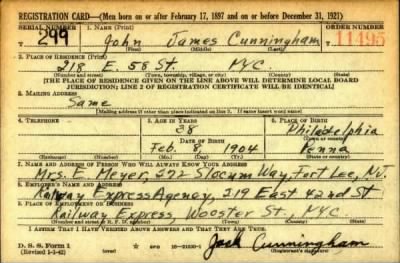 REGISTRATION CARD—(Men born on or after February 17, 1897 and on or before December 31, 1921)
SERIAL NUMBER 1. NAME (Print) ORDER NUMBER
299 John James Cunningham 11495
(First) (Middle) (Last)
2. PLACE OF RESIDENCE (Print)
218 E. 58 St. NYC.
(Number and street) (Town, township, village, or city) (County) (State)
[THE PLACE OF RESIDENCE GIVEN ON THE LINE ABOVE WILL DETERMINE LOCAL BOARD
JURISDICTION; LINE 2 OF REGISTRATION CERTIFICATE WILL BE IDENTICAL]
3. MAILING ADDRESS
Same
[Mailing address if other than place indicated on line 2. If same insert word same]
4. TELEPHONE 5. AGE IN YEARS 6. PLACE OF BIRTH
38 Philadelphia
DATE OF BIRTH (Town or county)
Feb. 8, 1904 Penna
(Exchange) (Number) (Mo.) (Day) (Yr.) (State or country)
7. NAME AND ADDRESS OF PERSON WHO WILL ALWAYS KNOW YOUR ADDRESS
Mrs. E. Meyer, 272 Slocum Way, Fort Lee, NJ.
8. EMPLOYER'S NAME AND ADDRESS
Railway Express Agency, 219 East 42nd St
9. PLACE OF EMPLOYMENT OR BUSINESS
Railway Express, Wooster St., NYC.
(Number and street or R. F. D. number) (Town) (County) (State)
I AFFIRM THAT I HAVE VERIFIED ABOVE ANSWERS AND THAT THEY ARE TRUE.
D. S. S. Form 1 GPO 16—21630-1 Jack Cunningham
(Revised 1-1-42) (Registrant's signature)